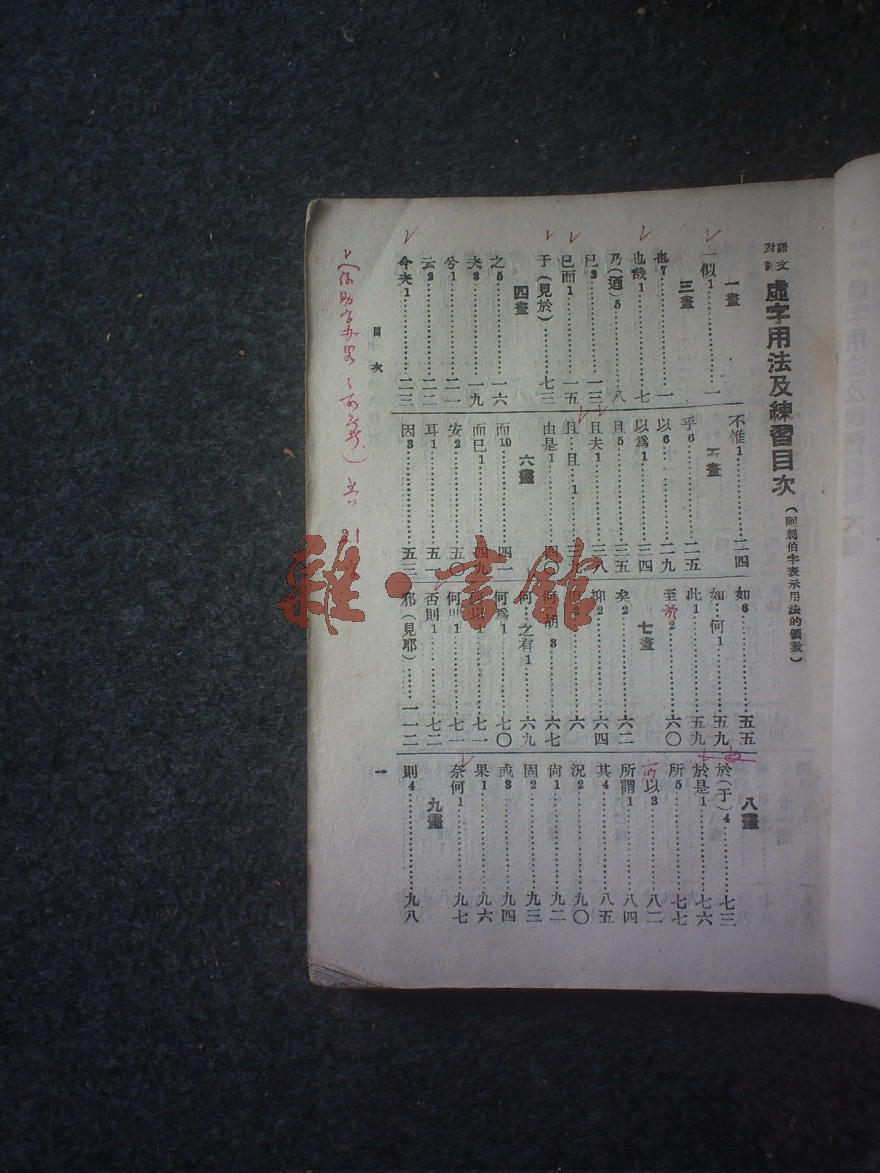 語文對譯 虛字用法及練習目次(阿剌伯字表示用法的個數)
一畫
一似1……一
三畫
也7……一
也哉1……七
乃(迺)5……八
已3……一三
已而1……一五
于(見於)……七三
四畫
之5……一六
夫3……一九
兮1……二一
云2……二二
今夫1……二三
不惟1……二四
五畫
乎6……二五
以6……二九
以爲1……三四
且5……三五
且夫1……三八
且…且…1……三
由是1……四〇
六畫
而10……四二
而已1……四九
安2……五〇
耳1……五一
因3……五三
如6……五五
如…何1……五九
此1……五九
至於2……六〇
七畫
矣2……六二
抑2……六四
六
胡3……六七
何…之有1……六九
何爲1……七〇
1……七一
何…1……七一
否則1……七二
邪(見耶)……一一二
八畫
於(于)4……七三
於是1……七六
所5……七七
所以3……八二
所謂1……八四
其4……八五
況2……九〇
尙1……九二
固2……九三
或3……九四
果1……九六
奈何1……九七
九畫
則4……九八
目次
一
21
雜·書館